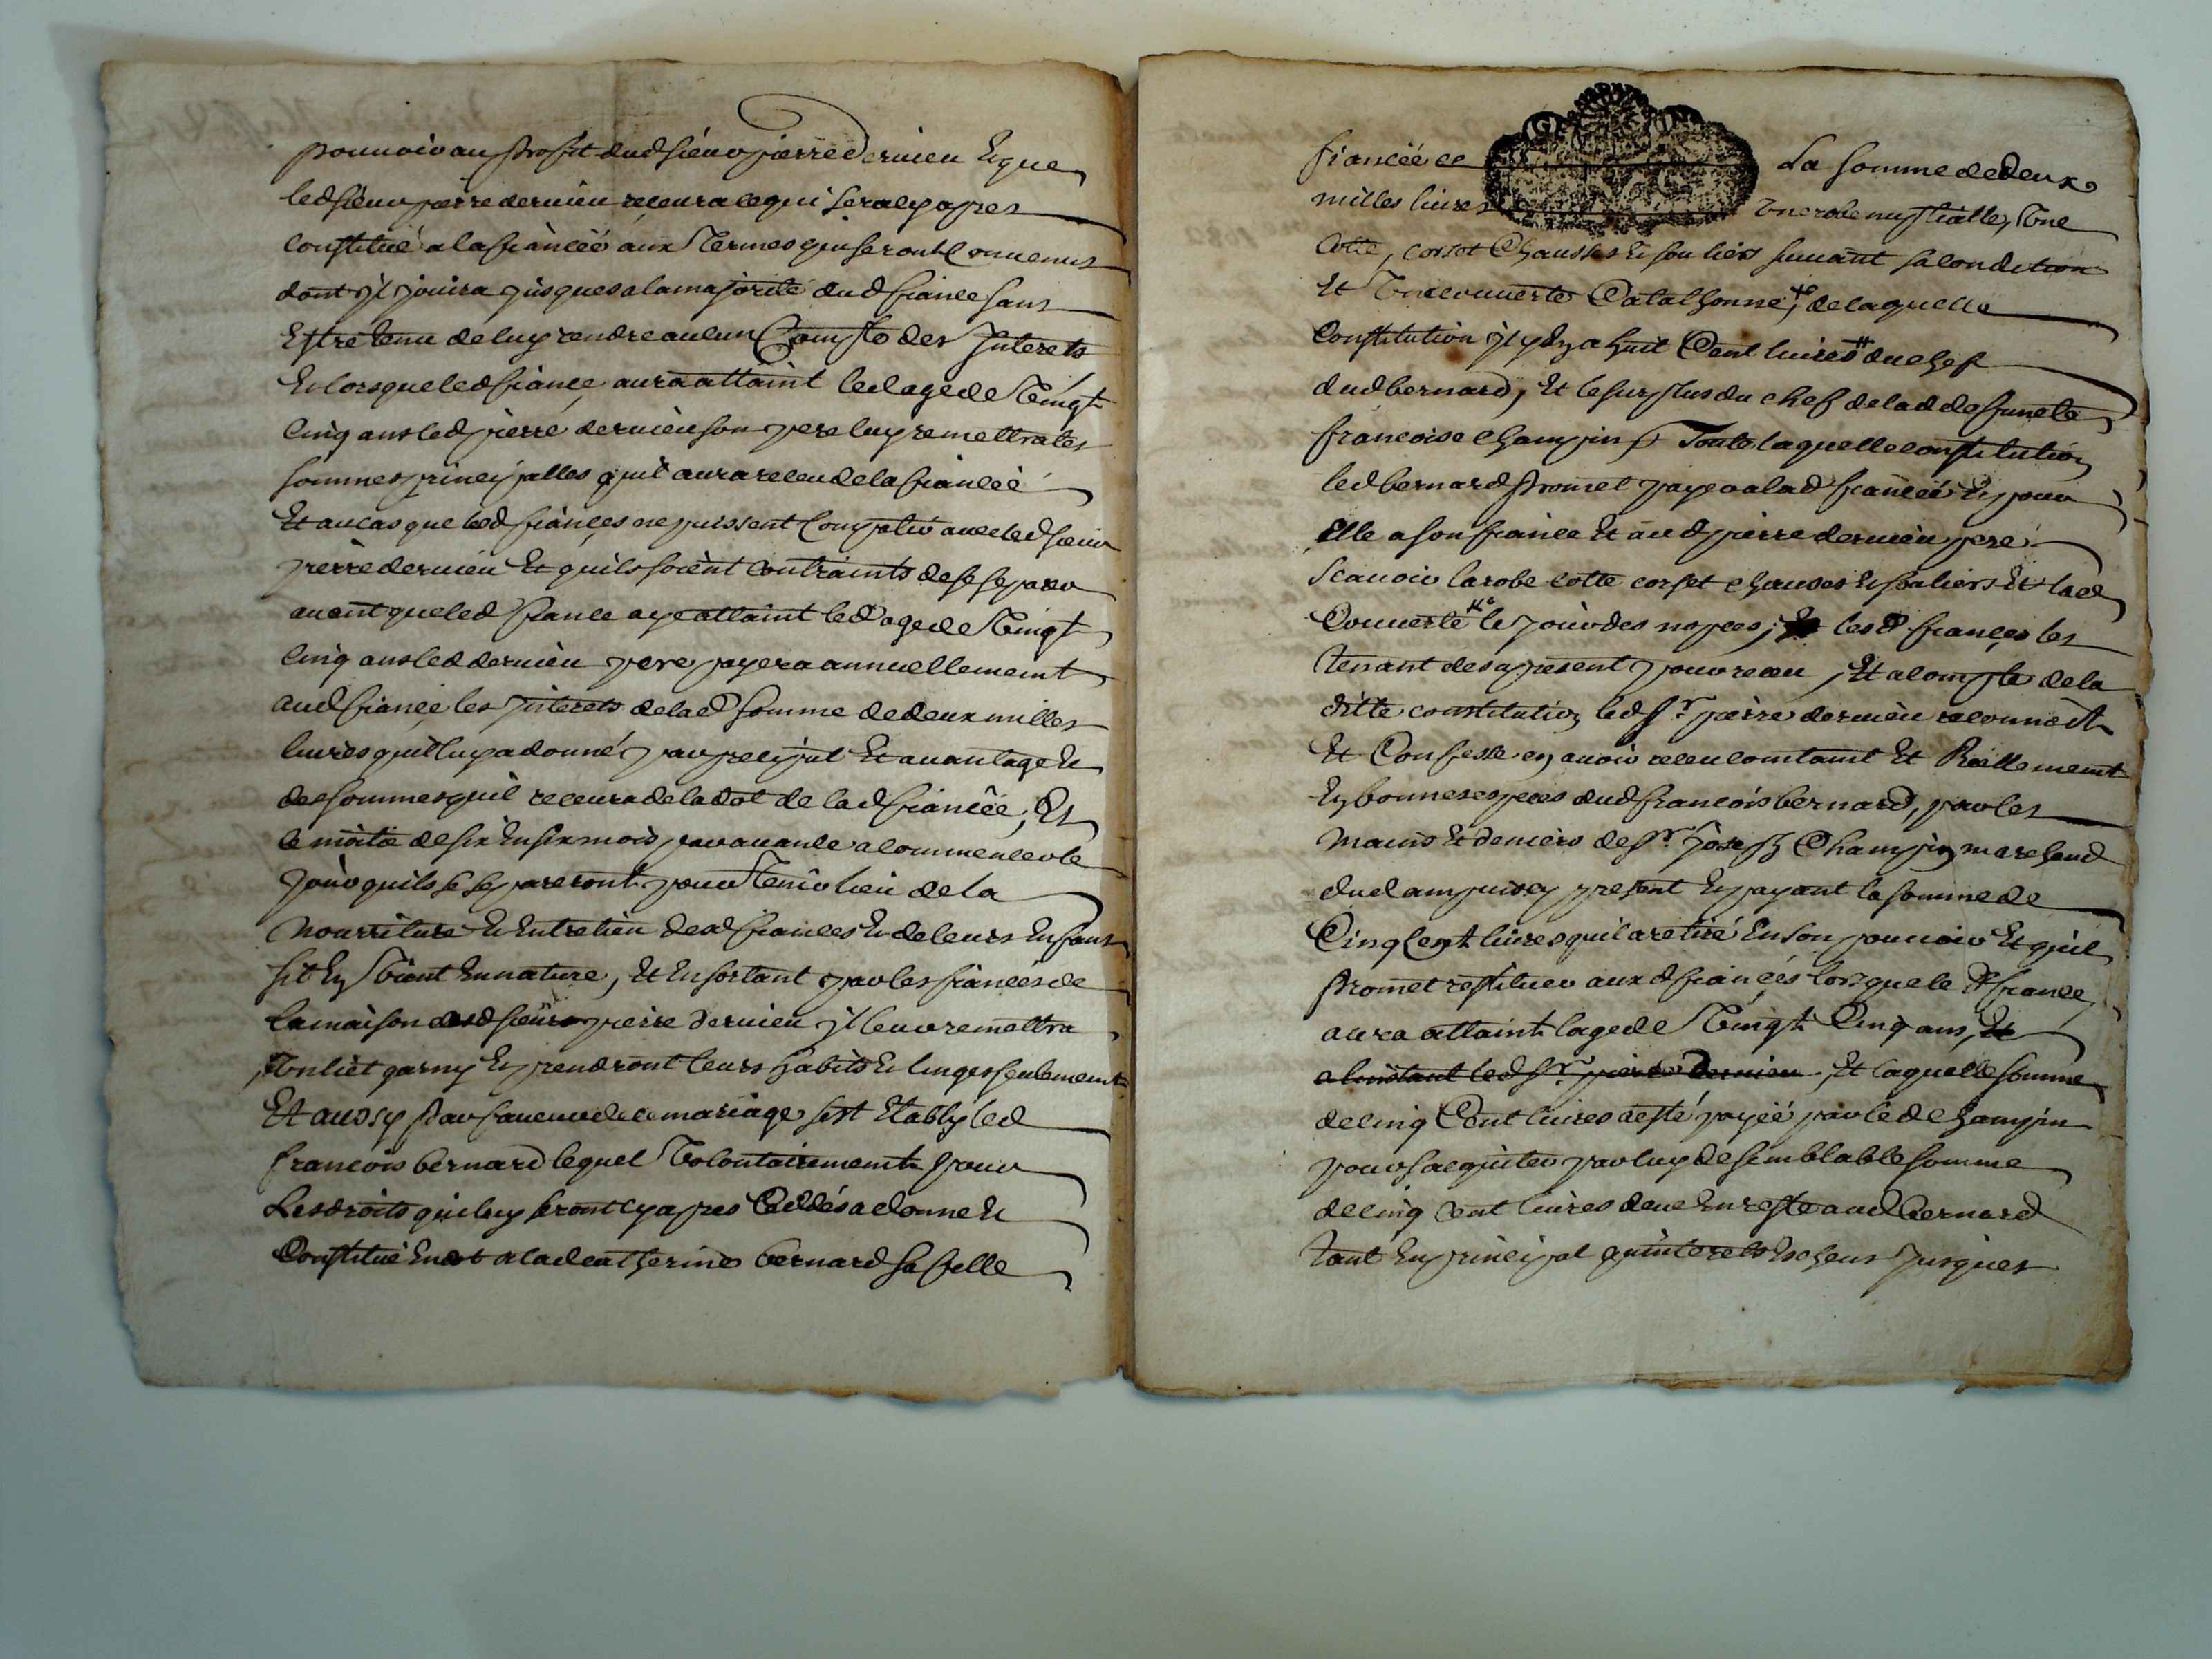 pouuoir au profit dud sieur pierre deruieu Et que
led sieur pierre deruieu receura ce qui sera cy apres
constitué a la fiancéé aux Termes qui seront Conuenus
dont jl jouira jusques a la majorité dud fiance sans
Estre tenu de luy rendre aucun Compte des Interets
Et lorsque led fiance, aura attaint led age de Vingt
cinq ans led pierre deruieu son pere luy remettra les
sommes principalles quil aura receu de la fiancéé
Et au cas que lesd fiances ne puissent Compatir auec led sieur
pierre deruieu Et quils soient contraints de se separer
auant que led fiance aye attaint led age de Vingt
cinq ans led deruieu pere payera annuellement
aud fiance, les jnterets de lad somme de deux milles
liures quil luy a donné par preciput Et auantage Et
des sommes quil receura de la dot de lad fiancéé, Et
ce moitié de six En six mois par auance a commencer le
jour quils se separeront pour Tenir lieu de la
Nourriture Et Entretien desd fiances Et de leurs Enfans
sil En Vient En nature, Et En sortant par les fiancés de
la maison dud sieur pierre deruieu jl leur remettra
Vn liet garny Et prendront leurs habits Et linges seulement
Et aussy par faueur de ce mariage sest Etably led
francois bernard lequel Volontairement pour
Les droits qui luy seront cy apres Ceddés a donne Et
Constitué En dot a lad catherine bernard sa fille
fiancéé ce La somme de deux
milles liures Vne robe nuptialle, Vne
Cotte, corset Chausses Et souliers suiuant sa condition
Et Vne couuerte Catalhonne, de laquelle
Constitution jl y En a huit Cent liures du chef
dud bernard, Et le surplus du chef de lad deffuncte
francoise champin, Toute laquelle constitution
led bernard promet payer a lad fiancéé Et pour
Elle a son fiance Et aud pierre deruieu pere
Scauoir la robe cotte corset chausses Et souliers Et lad
Couuerte le jour des nopces, les d fiances les
tenant des a present pour receu, Et a compte de la
ditte constitution led Sr. pierre deruieu reconnoit
Et Confesse en auoir receu comtant Et Réellement
En bonnes especes dud francois bernard, par les
Mains Et deniers de Sr. joseph Champin marchand
dud ampuis cy present Et payant la somme de
Cinq Cent liures quil a retiré En son pouuoir Et quil
promet restituer aux d fiancés lorsque le d fiance,
aura attaint lage de Vingt Cinq ans, Et
a linstant led Sr. pierre Deruieu, Et laquelle somme
de cinq Cent liures a esté payéé par led champin
pour sacquiter par luy de semblable somme
de cinq cent liures deue En reste aud Bernard
tant En principal quinterets Escheus jusques